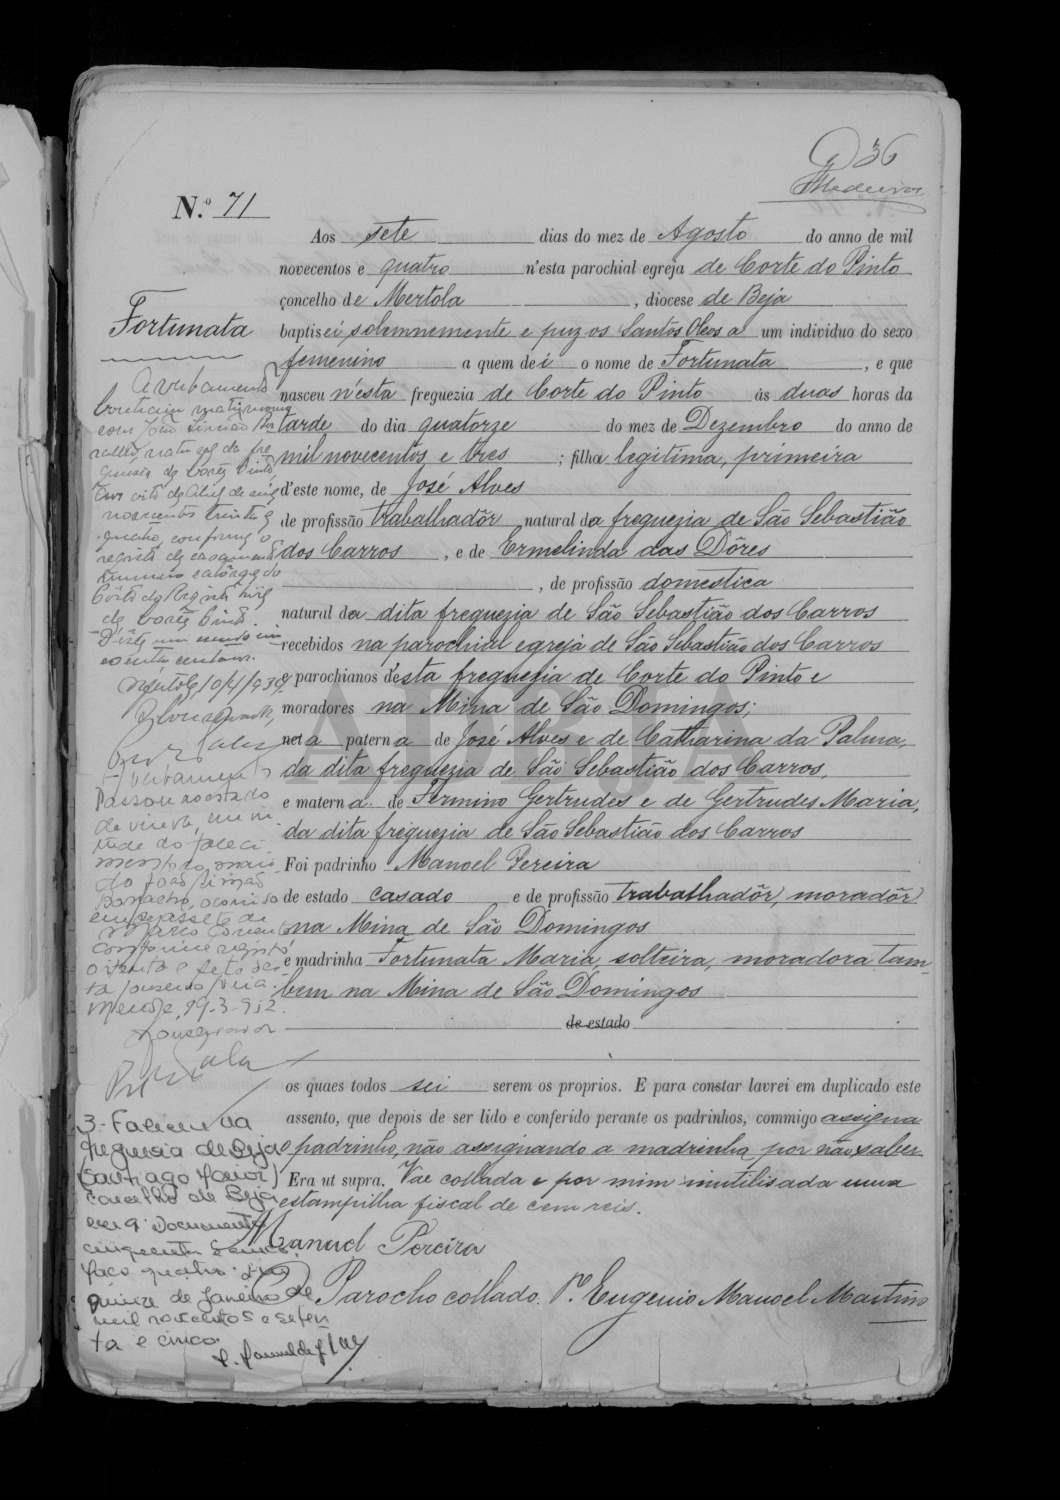 36
Medeiros
N.º 71
Aos sete dias do mez de Agosto do anno de mil
novecentos e quatro n'esta parochial egreja de Corte do Pinto
concelho de Mertola, diocese de Beja
Fortunata
baptisei solemnemente e puz os Santos Oleos a um individuo do sexo
femenino a quem dei o nome de Fortunata, e que
nasceu n'ésta freguezia de Corte do Pinto ás duas horas da
tarde do dia quatorze do mez de Dezembro do anno de
mil novecentos e tres; filha legitima, primeira
d'este nome, de José Alves
de profissão trabalhadôr natural da freguezia de São Sebastião
dos Carros, e de Ermelinda das Dôres
, de profissão domestica
natural da dita freguezia de São Sebastião dos Carros
recebidos na parochial egreja de São Sebastião dos Carros
e parochianos d'esta freguezia de Corte do Pinto e
moradores na Mina de São Domingos;
neta paterna de José Alves e de Catharina da Palma,
da dita freguezia de São Sebastião dos Carros,
e materna de Firmino Gertrudes e de Gertrudes Maria,
da dita freguezia de São Sebastião dos Carros
Foi padrinho Manoel Pereira
de estado casado e de profissão trabalhadôr, moradôr
na Mina de São Domingos
e madrinha Fortunata Maria, solteira, moradora tam-
bem na Mina de São Domingos
de estado
os quaes todos sei serem os proprios. E para constar lavrei em duplicado este
assento, que depois de ser lido e conferido perante os padrinhos, commigo assigna
o padrinho, não assignando a madrinha por não saber.
Era ut supra. Vae collada e por mim inutilisada uma
estampilha fiscal de cem reis.
Manuel Pereira
O Parocho collado. P.e Eugenio Manoel Martins
Averbamento
Contraiu matrimonio
com João Simão
natural da fre
guesia de Corte Pinto,
em oito de Abril de mil
novecentos trinta e
quatro, conforme o
registo de casamento
numero catorze do
Posto do Registo Civil
de Corte Pinto.
Mértola, 10/4/934
Averbamento
Passou ao estado
de viuva, em vir
tude do faleci-
mento do mari-
do João Simão
, ocorrido
em dezassete de
Março corrente
conforme registo
oitenta e sete des-
ta conservatória.
29-3-952.
Conservador
3- Faleceu na
freguesia de Beja
(Santiago Maior)
concelho de Beja
em 9. Documento
cinquenta e cinco,
maço quatro.
quinze de Janeiro de
mil novecentos e seten
ta e cinco.
ADBJA